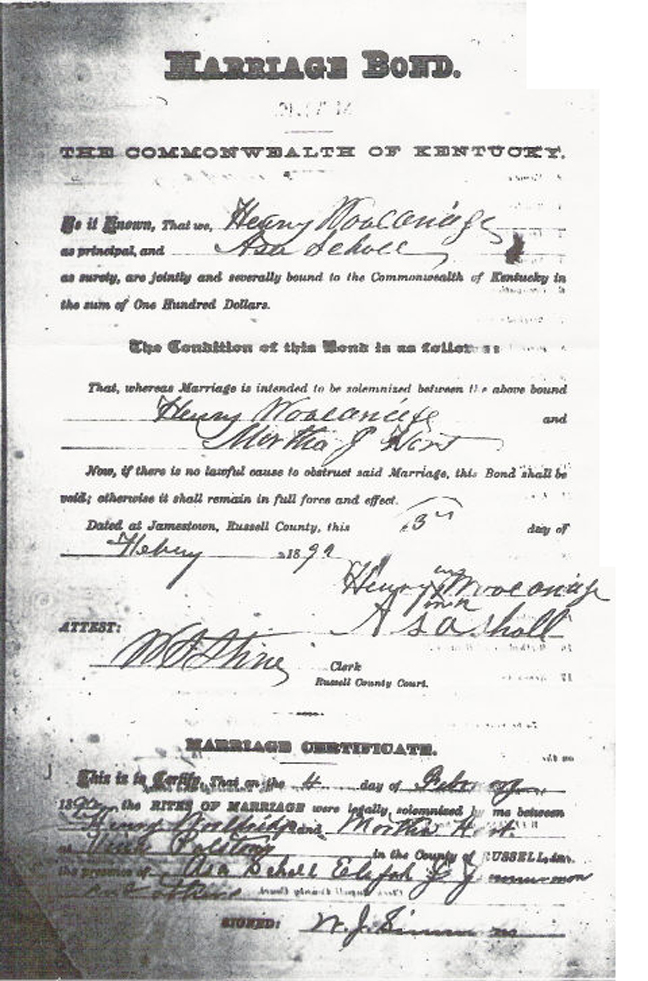 MARRIAGE BOND.
THE COMMONWEALTH OF KENTUCKY.
Be it Known, That we, Henry Wooldridge
as principal, and Asa Scholl
as surety, are jointly and severally bound to the Commonwealth of Kentucky in
the sum of One Hundred Dollars.
The Condition of this Bond is as follows:
That, whereas Marriage is intended to be solemnized between the above bound
Henry Wooldridge and
Martha J Hart
Now, if there is no lawful cause to obstruct said Marriage, this Bond shall be
void; otherwise it shall remain in full force and effect.
Dated at Jamestown, Russell County, this 3rd day of
Febury 189
Henry Wooldridge
mark
Asa Sholl
ATTEST:
Clerk
Russell County Court.
MARRIAGE CERTIFICATE.
This is to Certify, That on the 4 day of
189 the RITES OF MARRIAGE were legally solemnized by me between
Henry Wooldridge and Martha Hart
at in the County of RUSSELL,
the presence of Asa Scholl Elijah
and others
SIGNED: W. J.